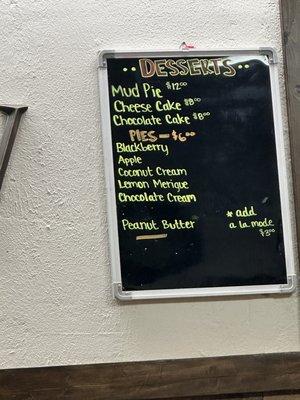 DESSERTS
Mud Pie $12.00
Cheese Cake $8.00
Chocolate Cake $8.00
PIES - $6.00
Blackberry
Apple
Coconut Cream
Lemon Merigue
Chocolate Cream
Peanut Butter
* add
a la mode
$3.00